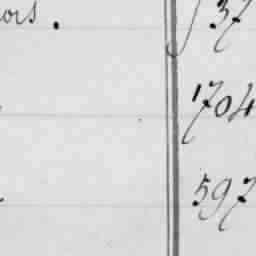 ors. 37
1704
597